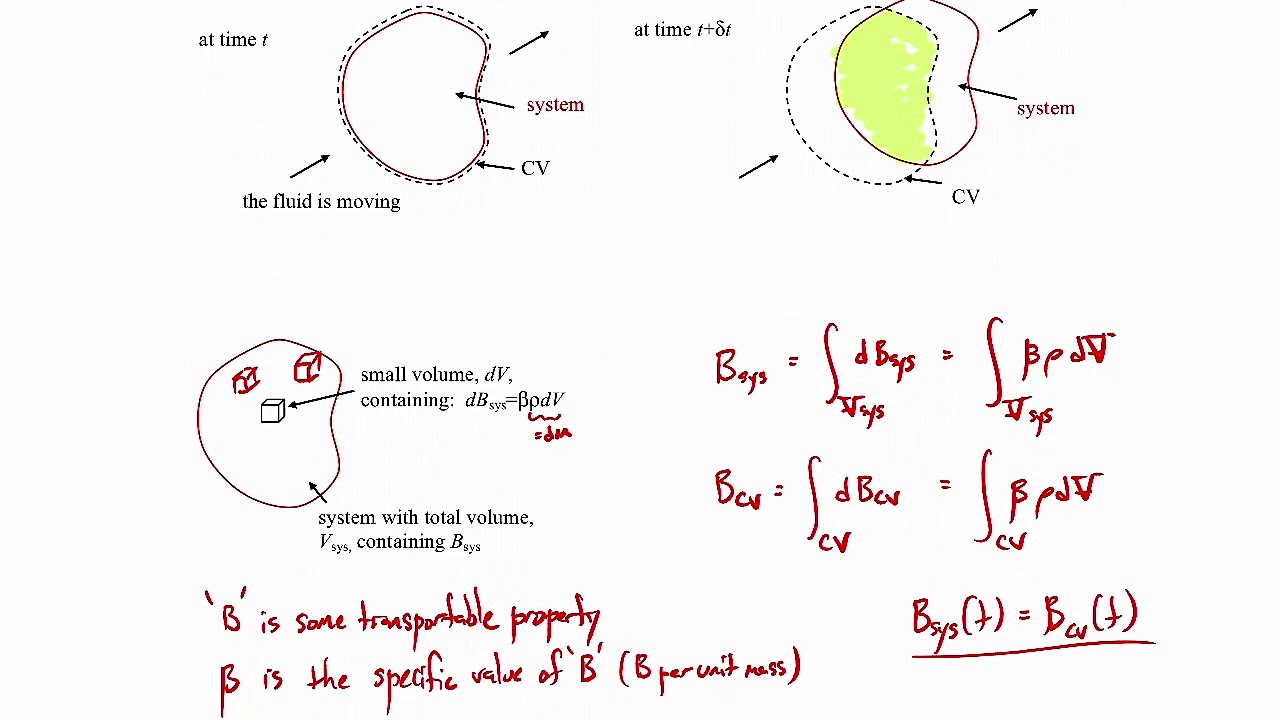 at time t
system
CV
the fluid is moving
at time t+δt
system
CV
small volume, dV,
containing: dBsys=βρdV
=dm
system with total volume,
Vsys, containing Bsys
Bsys = ∫Vsys dBsys = ∫Vsys βρdV
BCV = ∫CV dBCV = ∫CV βρdV
'B' is some transportable property
β is the specific value of 'B' (B per unit mass)
Bsys(t) = Bcv(t)